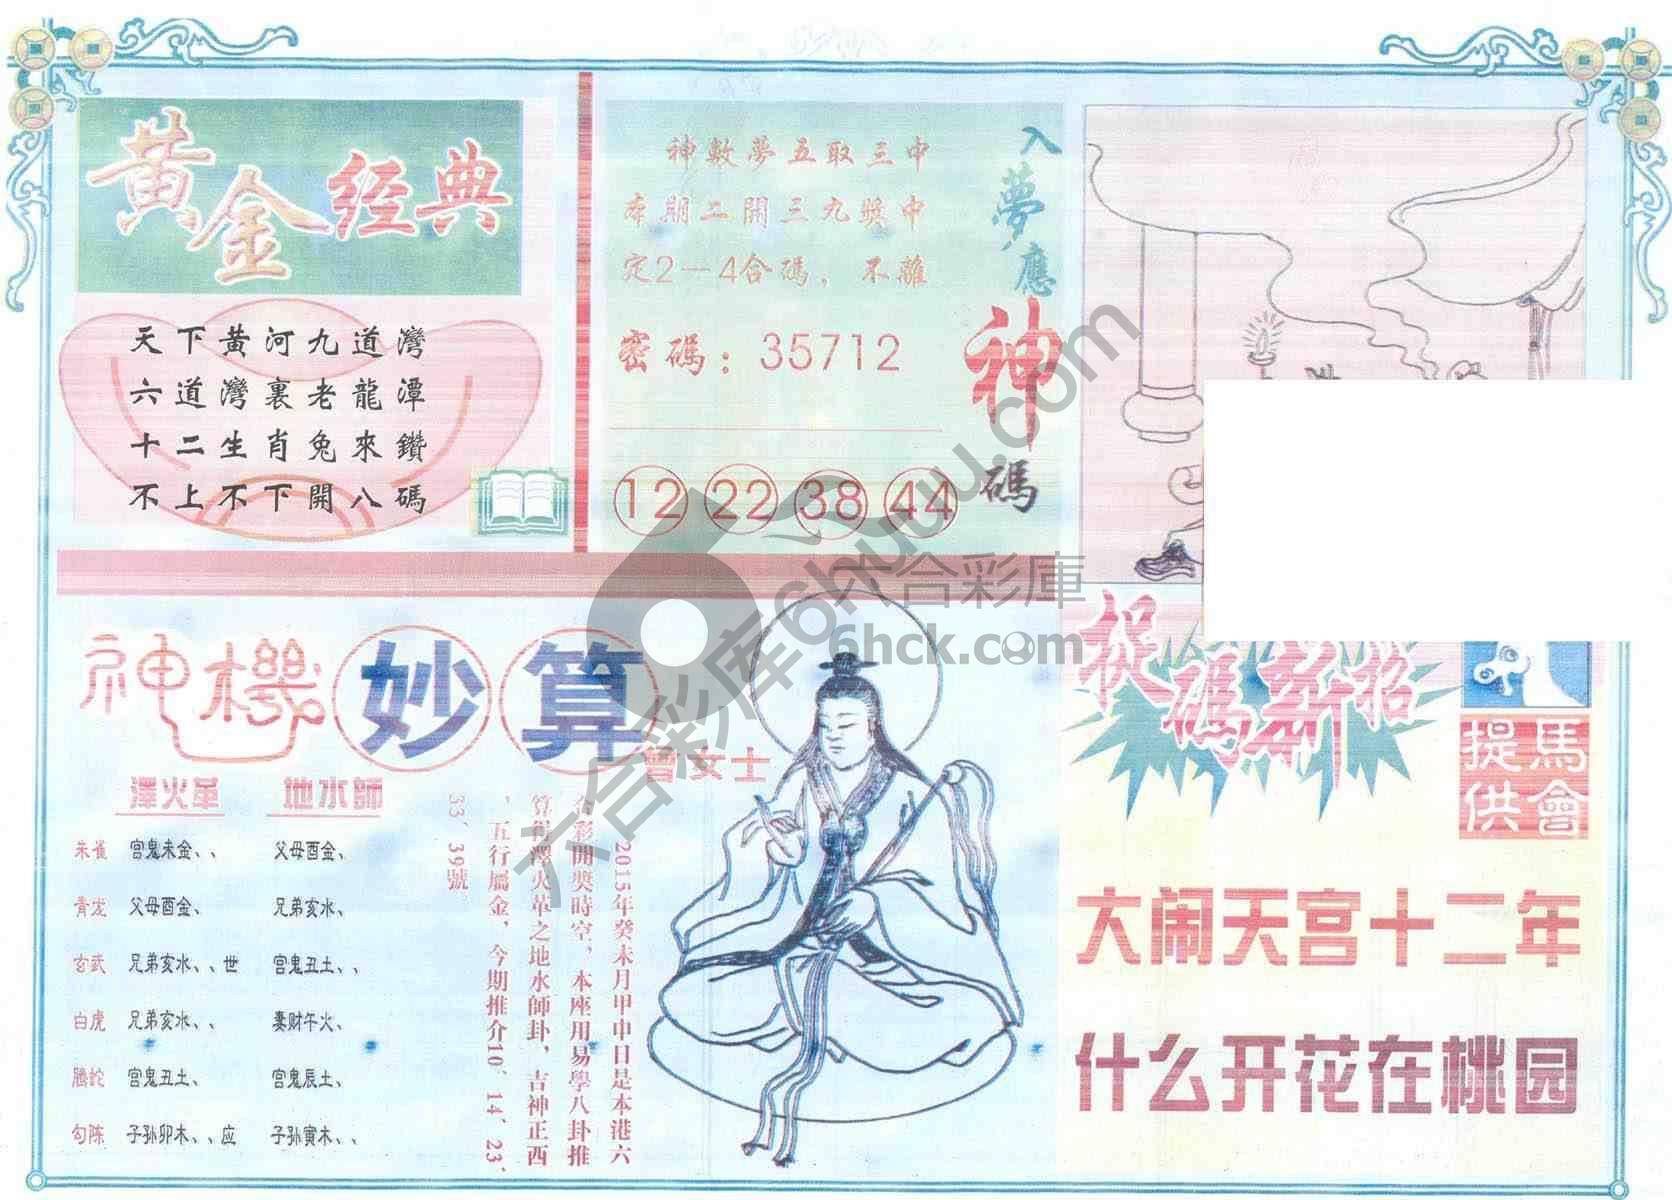 黄金经典
天下黄河九道灣
六道灣裏老龍潭
十二生肖兔來鑽
不上不下開八碼
入夢應神碼
神數夢五取三中
本期二開三九獎中
定2—4合碼，不離
密碼：35712
12 22 38 44
神機妙算
曾女士
澤火革 地水師
朱雀 官鬼未金、、 父母酉金、
青龙 父母酉金、 兄弟亥水、
玄武 兄弟亥水、、世 官鬼丑土、、
白虎 兄弟亥水、、 妻财午火、
腾蛇 官鬼丑土、 官鬼辰土、
勾陈 子孙卯木、、应 子孙寅木、、
2015年癸未月甲申日是本港六
合彩開獎時空，本座用易學八卦推
算得澤火革之地水師卦，吉神正西
，五行屬金，今期推介10、14、23、
33、39號
捉碼新招
馬會提供
大闹天宫十二年
什么开花在桃园
六合彩库6huu.com
六合彩庫
6hck.com